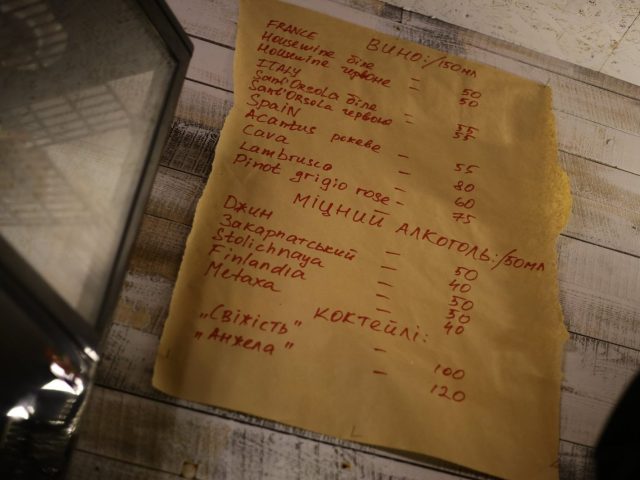 ВИНО:/150мл
FRANCE
Housewine біле - 50
Housewine червоне - 50
ITALY
Sant'Orsola біле - 55
Sant'Orsola червоне - 55
Spain
Acantus рожеве - 55
Cava - 80
Lambrusco - 60
Pinot grigio rose - 75
МІЦНИЙ АЛКОГОЛЬ:/50мл
Джин - 50
Закарпатський - 40
Stolichnaya - 50
Finlandia - 50
Metaxa - 40
КОКТЕЙЛІ:
„Свіжість" - 100
„Анжела" - 120